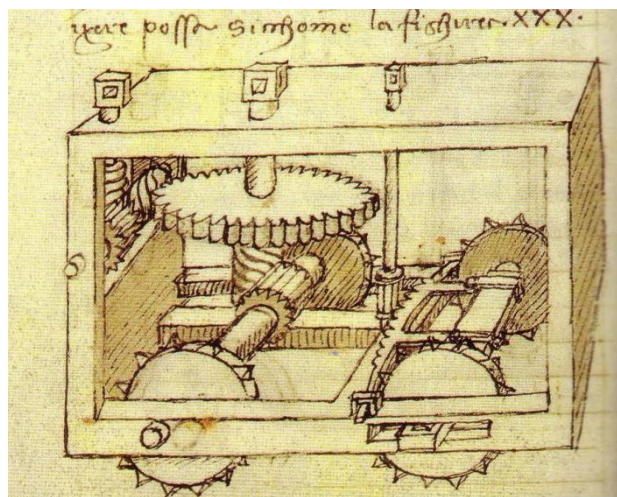 posse sicchome la fighura. XXX.